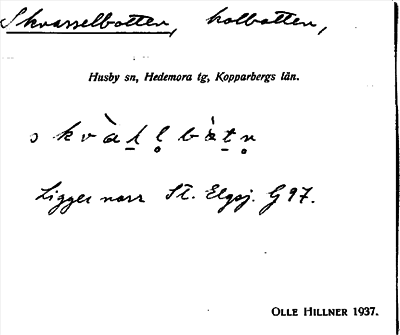 Skvasselbotten, kolbotten,
Husby sn, Hedemora tg, Kopparbergs län.
Ligger norr St. Elgsj. G 97.
OLLE HILLNER 1937.